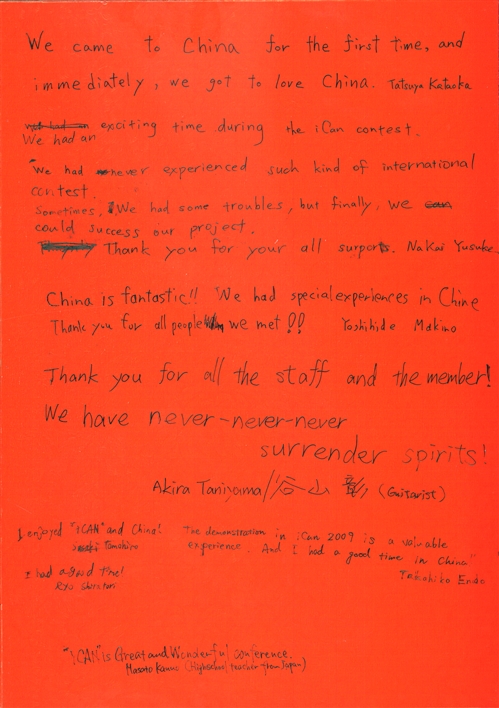 We came to China for the first time, and
immediately, we got to love China. Tatsuya Kataoka
exciting time during the iCan contest.
We had an
We had never experienced such kind of international
contest.
Sometimes, We had some troubles, but finally, we
could success our project.
Thank you for your all surports. Nakai Yusuke.
China is fantastic!! We had special experiences in Chine
Thank you for all people we met!!  Yoshihide Makino
Thank you for all the staff and the member!
We have never-never-never
surrender spirits!
Akira Taniyama/谷山 彰 (Guitarist)
I enjoyed "iCAN" and China!
Tomohiro
The demonstration in iCan 2009 is a valuable
experience. And I had a good time in China"
Tomohiko Endo
I had a good time!
Ryo Shirotori
"iCAN" is Great and Wonderful conference.
Masato Kanno (Highschool teacher from Japan)